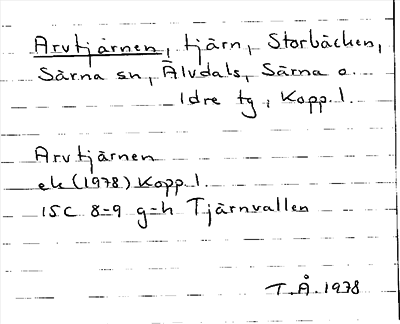 Arvtjärnen, tjärn, Storbäcken,
Särna sn, Älvdals, Särna o.
Idre tg, Kopp. l.
Arvtjärnen
ek (1978) Kopp. l.
15C 8-9 g-h Tjärnvallen
T.Å. 1978